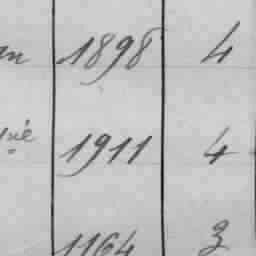 1898 4
1911 4
1164 3